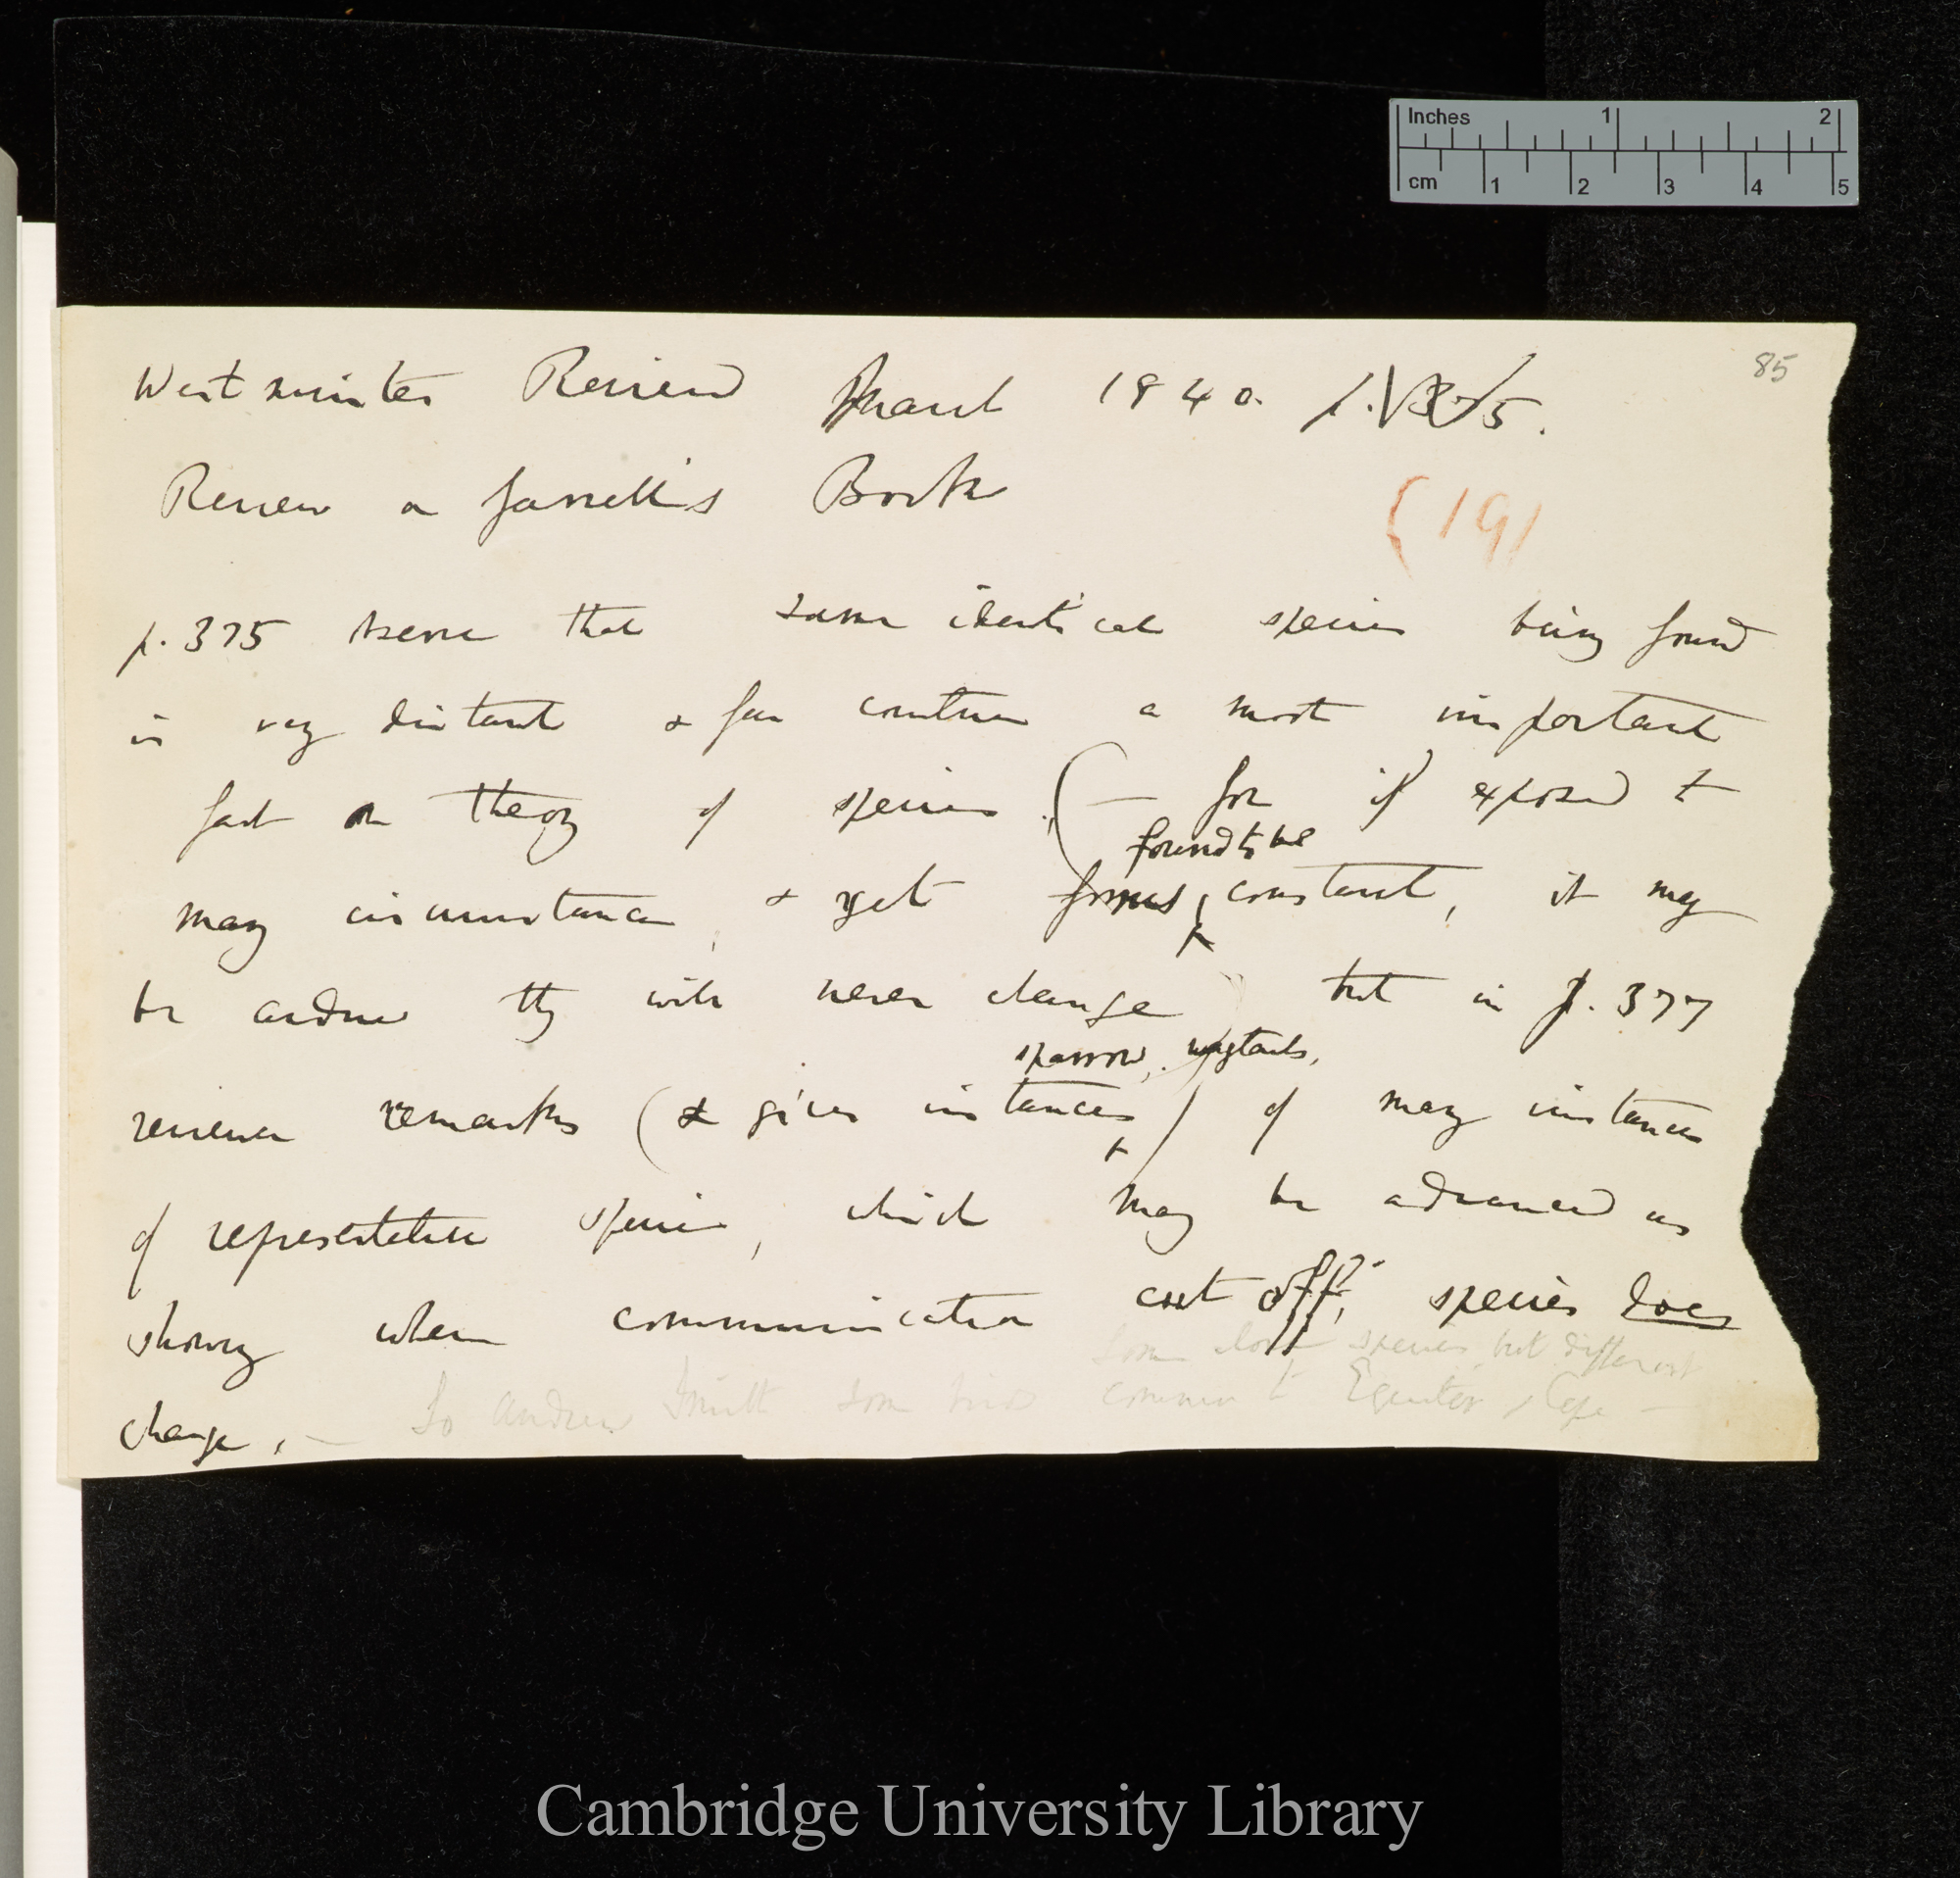 Inches 1 2
cm 1 2 3 4 5
85
Westminster Review March 1840. p.
Review on Yarrell's Book
(19)
p. 375 seems that same identical species being found
in very distant & far countries a most important
fact on theory of species. (— for if exposed to
found to be
many circumstances, & yet forms constant, it may
be argued they will never change but in p. 377
sparrow, wagtails,
reviewer remarks (& gives instances) of many instances
of representative species, which may be advanced as
showing when communication cut off, species does
some species but different
change. — So Andrew Smith some birds common to Equator & Cape —
Cambridge University Library